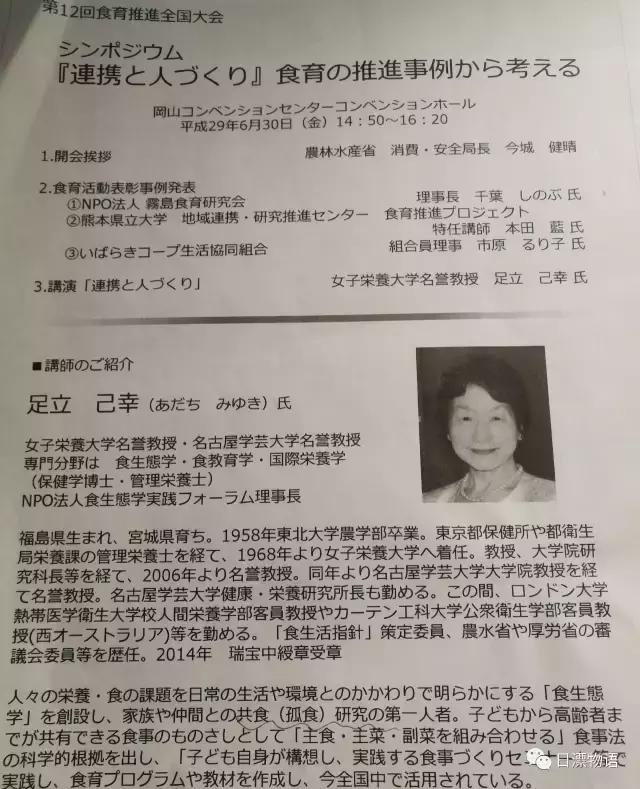 第12回食育推進全国大会
シンポジウム
『連携と人づくり』食育の推進事例から考える
岡山コンベンションセンターコンベンションホール
平成29年6月30日（金）14：50～16：20
1.開会挨拶　農林水産省　消費・安全局長　今城　健晴
2.食育活動表彰事例発表
①NPO法人 霧島食育研究会　理事長　千葉　しのぶ 氏
②熊本県立大学　地域連携・研究推進センター　食育推進プロジェクト
特任講師　本田　藍 氏
③いばらきコープ生活協同組合　組合員理事　市原　るり子 氏
3.講演「連携と人づくり」　女子栄養大学名誉教授　足立　己幸 氏
■講師のご紹介
足立　己幸（あだち　みゆき）氏
女子栄養大学名誉教授・名古屋学芸大学名誉教授
専門分野は　食生態学・食教育学・国際栄養学
（保健学博士・管理栄養士）
NPO法人食生態学実践フォーラム理事長
福島県生まれ、宮城県育ち。1958年東北大学農学部卒業。東京都保健所や都衛生
局栄養課の管理栄養士を経て、1968年より女子栄養大学へ着任。教授、大学院研
究科長等を経て、2006年より名誉教授。同年より名古屋学芸大学大学院教授を経
て名誉教授。名古屋学芸大学健康・栄養研究所長も勤める。この間、ロンドン大学
熱帯医学衛生大学校人間栄養学部客員教授やカーテン工科大学公衆衛生学部客員教
授(西オーストラリア)等を勤める。「食生活指針」策定委員、農水省や厚労省の審
議会委員等を歴任。2014年　瑞宝中綬章受章
人々の栄養・食の課題を日常の生活や環境とのかかわりで明らかにする「食生態
学」を創設し、家族や仲間との共食（孤食）研究の第一人者。子どもから高齢者ま
でが共有できる食事のものさしとして「主食・主菜・副菜を組み合わせる」食事法
の科学的根拠を出し、「子ども自身が構想し、実践する食事づくりセ
実践し、食育プログラムや教材を作成し、今全国中で活用されている。
日漂物语